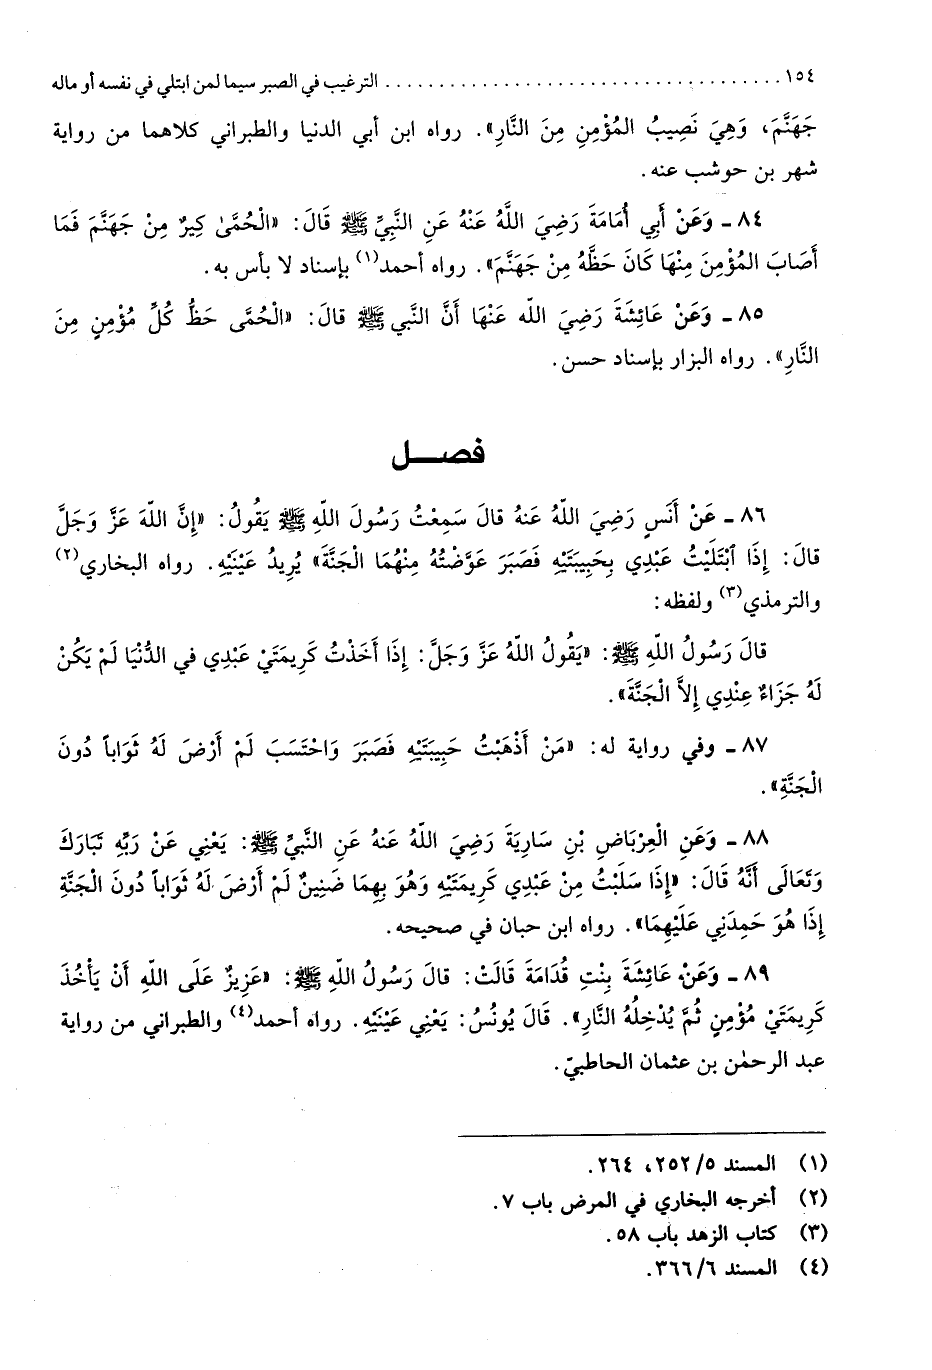 ١٥٤ . . . . . . . . . . . . . . . . . . . . . . . . . . . . . الترغيب في الصبر سيما لمن ابتلي في نفسه أو ماله
جَهَنَّمَ، وَهِيَ نَصِيبُ المُؤْمِنِ مِنَ النَّارِ». رواه ابن أبي الدنيا والطبراني كلاهما من رواية
شهر بن حوشب عنه.
٨٤ ـ وَعَنْ أَبِي أُمَامَةَ رَضِيَ اللَّهُ عَنْهُ عَنِ النَّبِيِّ ﷺ قَالَ: «الْحُمَّىٰ كِيرٌ مِنْ جَهَنَّمَ فَمَا
أَصَابَ المُؤْمِنَ مِنْهَا كَانَ حَظَّهُ مِنْ جَهَنَّمَ». رواه أحمد(١) بإسناد لا بأس به.
٨٥ ـ وَعَنْ عَائِشَةَ رَضِيَ الله عَنْهَا أَنَّ النَّبي ﷺ قالَ: «الْحُمَّى حَظُّ كُلِّ مُؤْمِنٍ مِنَ
النَّارِ». رواه البزار بإسناد حسن.
فصـــل
٨٦ ـ عَنْ أَنَسٍ رَضِيَ اللّهُ عَنهُ قالَ سَمِعْتُ رَسُولَ اللّهِ ﷺ يَقُولُ: «إِنَّ اللّهَ عَزَّ وَجَلَّ
قالَ: إِذَا ٱبْتَلَيْتُ عَبْدِي بِحَبِيبَتَيْهِ فَصَبَرَ عَوَّضْتُهُ مِنْهُمَا الْجَنَّةَ» يُرِيدُ عَيْنَيْهِ. رواه البخاري(٢)
والترمذي(٣) ولفظه:
قالَ رَسُولُ اللّهِ ﷺ: «يَقُولُ اللّهُ عَزَّ وَجَلَّ: إِذَا أَخَذْتُ كَرِيمَتَيْ عَبْدِي في الدُّنْيَا لَمْ يَكُنْ
لَهُ جَزَاءٌ عِنْدِي إِلاَّ الْجَنَّةَ».
٨٧ ـ وفي رواية له: «مَنْ أَذْهَبْتُ حَبِيبَتَيْهِ فَصَبَرَ وَاحْتَسَبَ لَمْ أَرْضَ لَهُ ثَوَاباً دُونَ
الْجَنَّةِ».
٨٨ ـ وَعَنِ الْعِرْبَاضِ بْنِ سَارِيَةَ رَضِيَ اللّهُ عَنهُ عَنِ النَّبِيِّ ﷺ: يَعْنِي عَنْ رَبِّهِ تَبَارَكَ
وَتَعَالَى أَنَّهُ قَالَ: «إِذَا سَلَبْتُ مِنْ عَبْدِي كَرِيمَتَيْهِ وَهُوَ بِهِمَا ضَنِينٌ لَمْ أَرْضَ لَهُ ثَوَاباً دُونَ الْجَنَّةِ
إِذَا هُوَ حَمِدَنِي عَلَيْهِمَا». رواه ابن حبان في صحيحه.
٨٩ ـ وَعَنْ عَائِشَةَ بِنْتِ قُدَامَةَ قَالَتْ: قالَ رَسُولُ اللّهِ ﷺ: «عَزِيزٌ عَلَى اللّهِ أَنْ يَأْخُذَ
كَرِيمَتَيْ مُؤْمِنٍ ثُمَّ يُدْخِلُهُ النَّارِ». قَالَ يُونُسُ: يَعْنِي عَيْنَيْهِ. رواه أحمد(٤) والطبراني من رواية
عبد الرحمٰن بن عثمان الحاطبيّ.
(١) المسند ٢٥٢/٥، ٢٦٤.
(٢) أخرجه البخاري في المرض باب ٧.
(٣) كتاب الزهد باب ٥٨.
(٤) المسند ٣٦٦/٦.